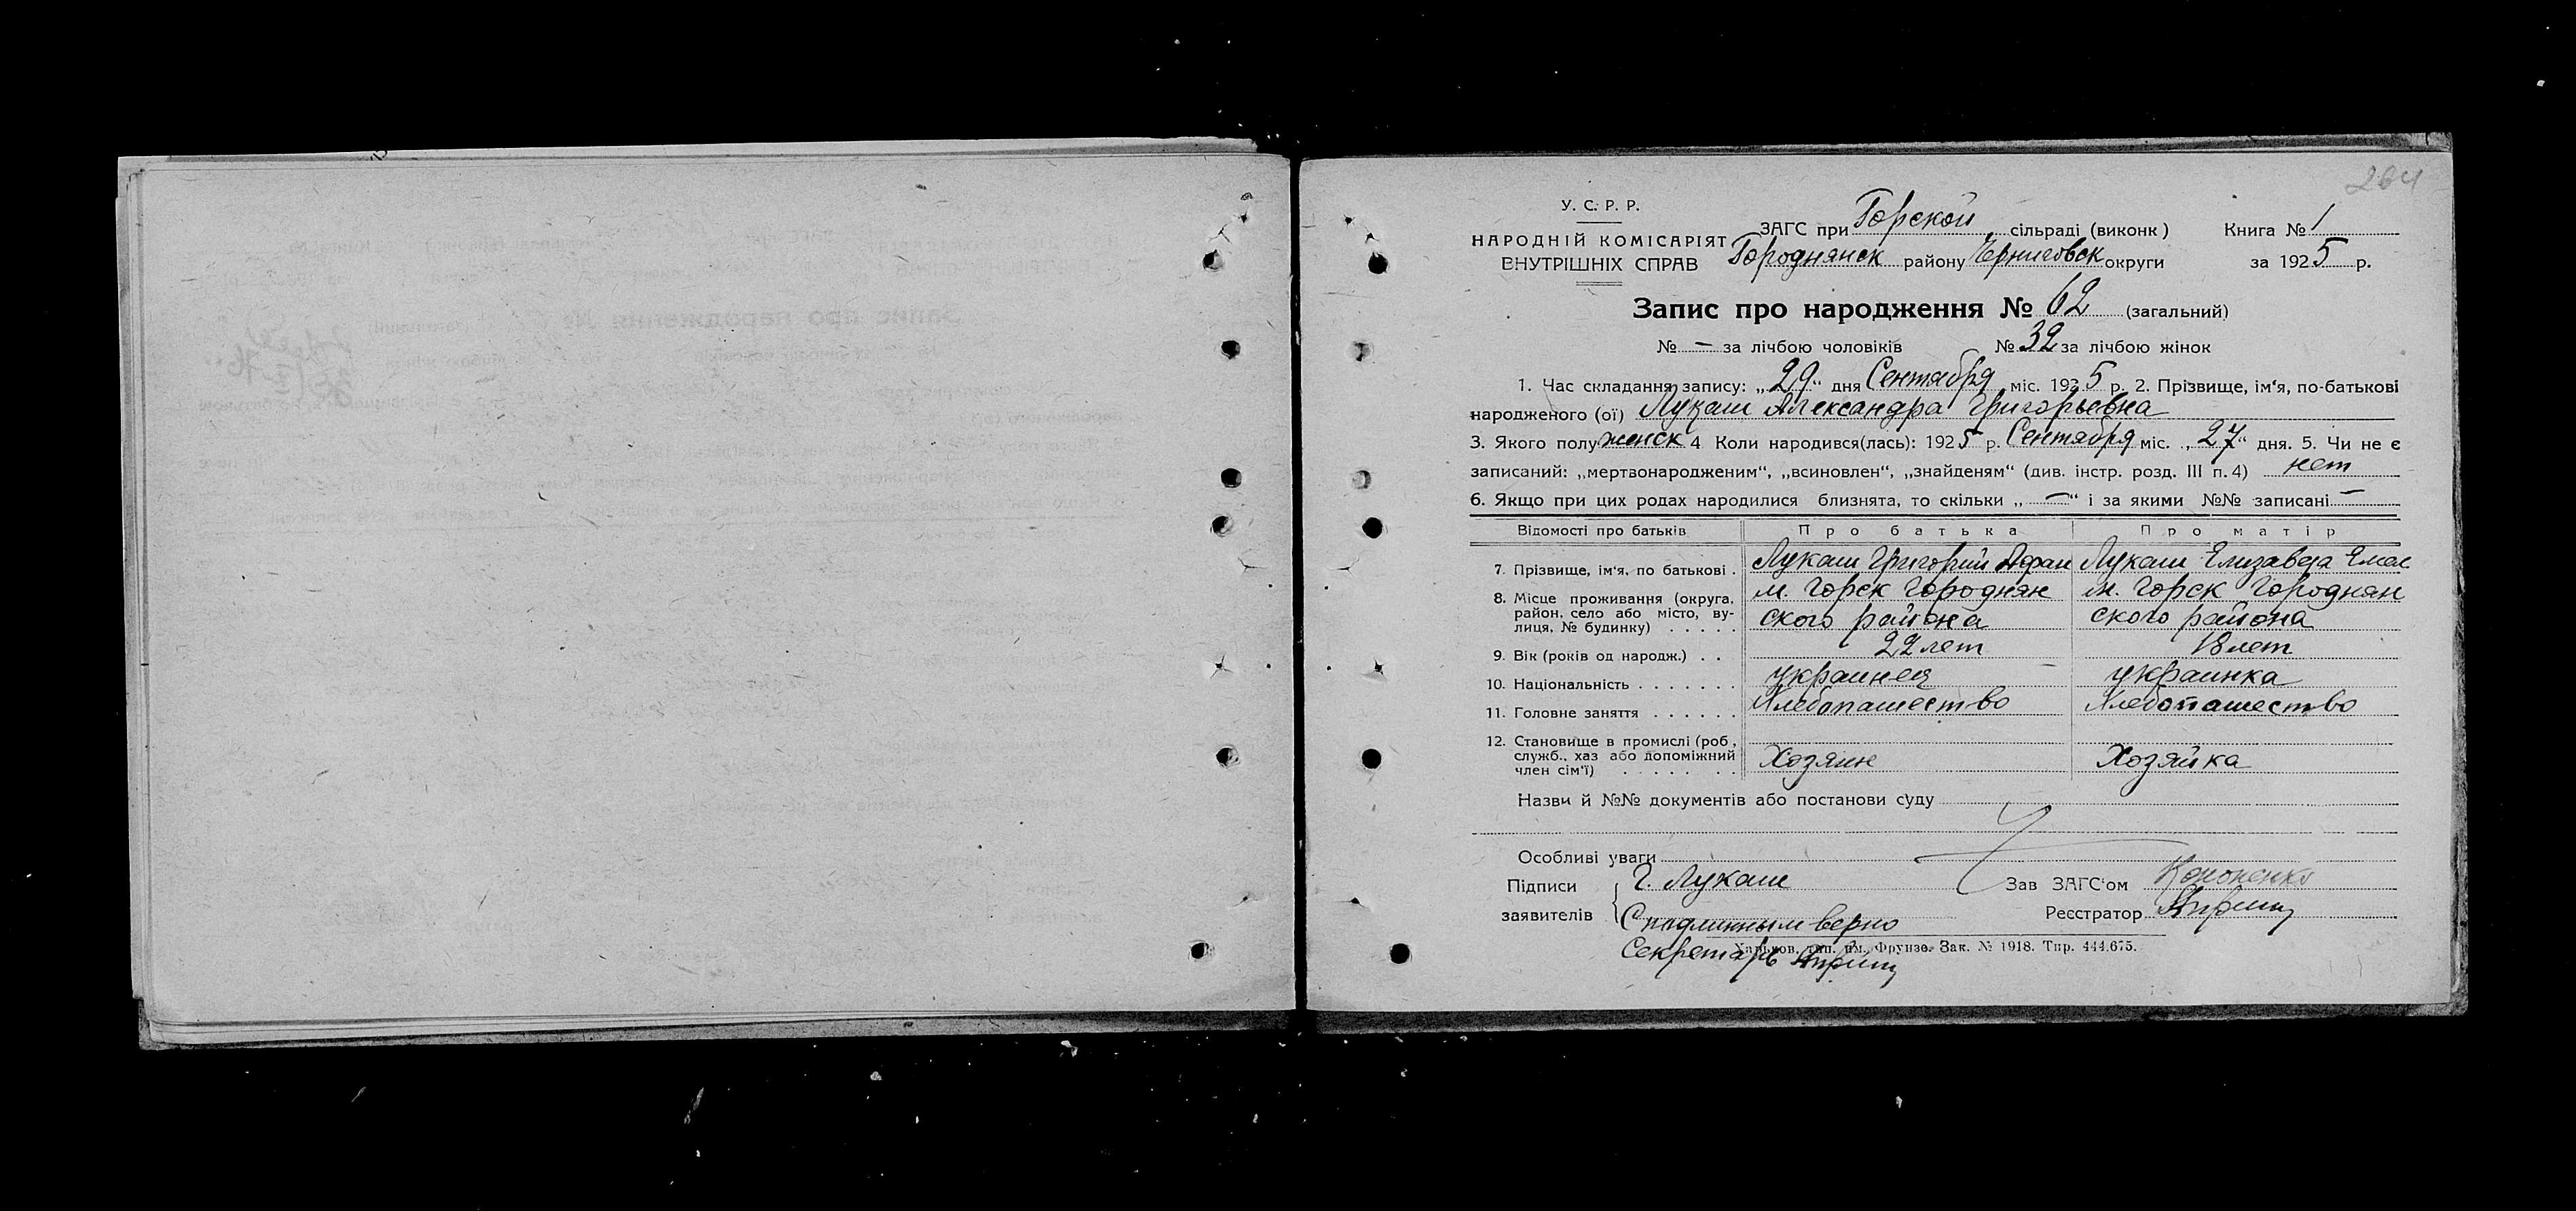 264
У. С. Р. Р.
НАРОДНІЙ КОМІСАРІЯТ
ВНУТРІШНІХ СПРАВ
ЗАГС при Горской сільраді (виконк)
Городнянск району Черниговск округи
Книга № 1
за 1925 р.
Запис про народження № 62 (загальний)
№ — за лічбою чоловіків № 32 за лічбою жінок
1. Час складання запису: „29“ дня Сентября міс. 1925 р. 2. Прізвище, ім‘я, по-батькові
народженого (ої) Лукаш Александра Григорьевна
3. Якого полу женск 4 Коли народився(лась): 1925 р. Сентября міс. „27“ дня. 5. Чи не є
записаний: „мертвонародженим“, „всиновлен“, „знайденям“ (див. інстр. розд. III п. 4) нет
6. Якщо при цих родах народилися близнята, то скільки „—“ і за якими №№ записані —
Відомості про батьків Про батька Про матір
7. Прізвище, ім‘я, по батькові . Лукаш Григорий Афан Лукаш Елизавета
8. Місце проживання (округа, район, село або місто, вулиця, № будинку) . . . . .
м. Горск Городнян м. Горск Городнян
ского района ского района
9. Вік (років од народж.) . . 22 лет 18 лет
10. Національність . . . . . . . украинец украинка
11. Головне заняття . . . . . . Хлебопашество Хлебопашество
12. Становище в промислі (роб, служб., хаз або допоміжний член сім‘ї) . . . . . . . Хозяин Хозяйка
Назви й №№ документів або постанови суду
Особливі уваги
Підписи
заявителів
Г. Лукаш
Зав ЗАГС‘ом
Реєстратор
С подлинным верно
Харьков, тип. им. Фрунзе. Зак. № 1918. Тир. 444.675.
Секретарь